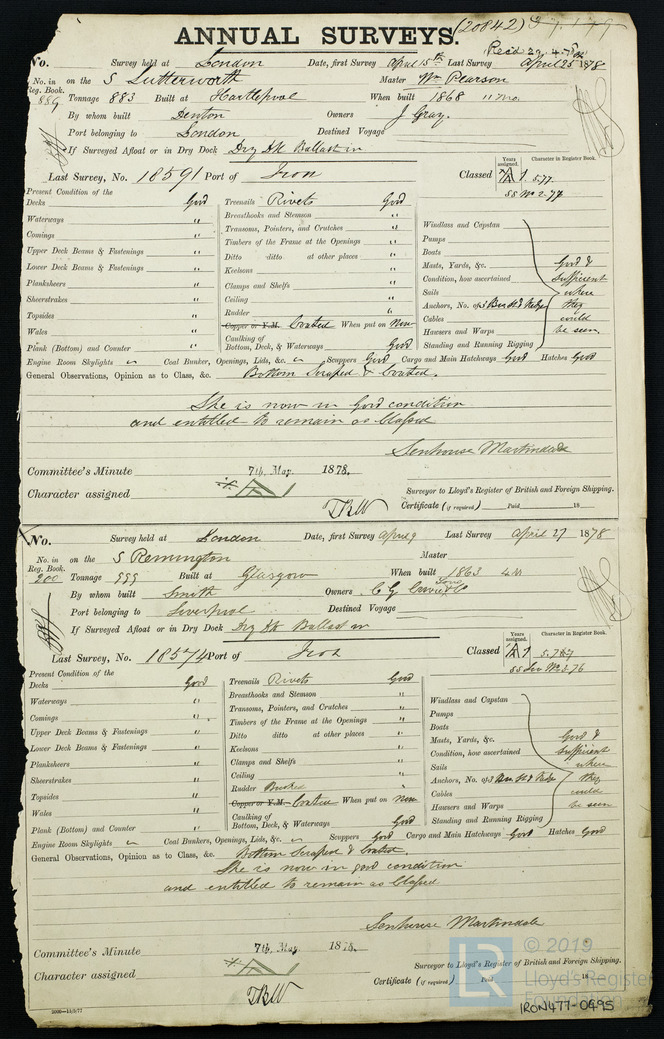 (20842)
ANNUAL SURVEYS.
No. Survey held at London Date, first Survey April 15th Last Survey April 25 1878
No. in Reg. Book. on the S Lutterworth Master Wm Pearson
889 Tonnage 883 Built at Hartlepool When built 1868 " mo.
By whom built Denton Owners J Gray.
Port belonging to London Destined Voyage
If Surveyed Afloat or in Dry Dock Dry Dk Ballast in
Last Survey, No. 18591 Port of Iron Classed
Years assigned. Character in Register Book.
A 1. 5.77
SS No 2-77
Present Condition of the
Decks Good Treenails Rivets Good
Waterways " Breasthooks and Stemson "
Comings " Transoms, Pointers, and Crutches "
Upper Deck Beams & Fastenings " Timbers of the Frame at the Openings "
Lower Deck Beams & Fastenings " Ditto ditto at other places "
Planksheers " Keelsons "
Sheerstrakes " Clamps and Shelfs "
Topsides " Ceiling "
Wales " Rudder "
Plank (Bottom) and Counter " Copper or Y.M. Coated When put on Now
Caulking of Bottom, Deck, & Waterways Good
Windlass and Capstan
Pumps
Boats
Masts, Yards, &c. Good &
Condition, how ascertained sufficient
Sails where
Anchors, No. of 3 Bwr St & Kedge they
Cables could
Hawsers and Warps be seen
Standing and Running Rigging
Engine Room Skylights " Coal Bunker, Openings, Lids, &c. " Scuppers Good Cargo and Main Hatchways Good Hatches Good
General Observations, Opinion as to Class, &c. Bottom Scraped & Coated.
She is now in good condition
and entitled to remain as Classed
Senhouse Martindale
Committee's Minute 7th May 1878.
Character assigned
Surveyor to Lloyd's Register of British and Foreign Shipping.
Certificate (if required) Paid 18
No. Survey held at London Date, first Survey April 9 Last Survey April 27 1878
No. in Reg. Book. on the S Remington Master
200 Tonnage 999 Built at Glasgow When built 1863 4 m
By whom built Smith Owners C G
Port belonging to Liverpool Destined Voyage
If Surveyed Afloat or in Dry Dock Dry Dk Ballast in
Last Survey, No. 18574 Port of Iron Classed
Years assigned. Character in Register Book.
A 1
Present Condition of the
Decks Good Treenails Rivets Good
Waterways " Breasthooks and Stemson "
Comings " Transoms, Pointers, and Crutches "
Upper Deck Beams & Fastenings " Timbers of the Frame at the Openings "
Lower Deck Beams & Fastenings " Ditto ditto at other places "
Planksheers " Keelsons "
Sheerstrakes " Clamps and Shelfs "
Topsides " Ceiling "
Wales " Rudder
Plank (Bottom) and Counter " Copper or Y.M. Coated When put on Now
Caulking of Bottom, Deck, & Waterways Good
Windlass and Capstan
Pumps
Boats
Masts, Yards, &c. Good &
Condition, how ascertained sufficient
Sails where
Anchors, No. of 3 Bwr St & Kedge they
Cables could
Hawsers and Warps be seen
Standing and Running Rigging
Engine Room Skylights " Coal Bunkers, Openings, Lids, &c. " Scuppers Good Cargo and Main Hatchways Good Hatches Good
General Observations, Opinion as to Class, &c. Bottom Scraped & Coated.
She is now in good condition
and entitled to remain as Classed
Senhouse Martindale
Committee's Minute 7th May 1878.
Character assigned
Surveyor to Lloyd's Register of British and Foreign Shipping.
Certificate (if required) Paid 18
LR © 2019
Lloyd's Register
IRON477-0495